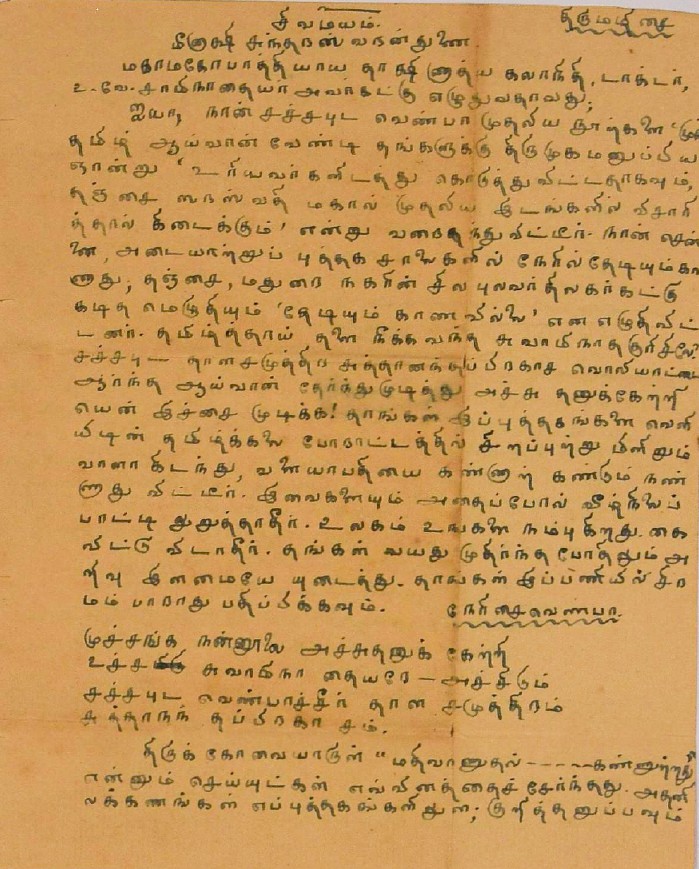 சிவமயம். திருமழிசை
மீனாக்ஷி சுந்தரஸ் வரன்துணை.
மகாமகோபாத்தியாய தாக்ஷிணாத்ய கலாநிதி, டாக்டர்,
உ. வே. சாமிநாதையா அவர்கட்கு எழுதுவதாவது;
ஐயா, நான் சச்சபுட வெண்பா முதலிய நூர்களை
தமிழ் ஆய்வான் வேண்டி தங்களுக்கு திருமுகமனுப்பிய
ஞான்று 'உரியவர்களிடத்து கொடுத்துவிட்டதாகவும்,
தஞ்சை ஸரஸ்வதி மகால் முதலிய இடங்களில் விசாரி
த்தால் கிடைக்கும்' என்று வரைந்துவிட்டீர். நான் சென்
னை, அடையாற்றுப் புத்தக சாலைகளில் நேரில்தேடியும்கா
ணாது; தஞ்சை, மதுரை நகரின் சில புலவர்திலகர்கட்கு
கடித மெழுதியும் 'தேடியும் காணவில்லை' என எழுதிவிட்
டனர். தமிழ்த்தாய் தளை நீக்கவந்த சுவாமிநாத
சச்சபு — தாளசமுத்திர சுத்தானந்தப்பிரகாச
ஆர்ந்த ஆய்வான் தேர்ந்துமுடித்து அச்சு தனுக்கேற்றி
யென் இச்சை முடிக்க! தாங்கள் இப்புத்தகங்களை வெளி
யிடின் தமிழ்க்கலை போராட்டத்தில் சிறப்புற்று மிளிரும்
வாளா கிடந்து, வளையாபதியை கண்ணாற் கண்டும் நண்
ணாது விட்டீர். இவைகளையும் அதைப்போல்
பாட்டி துறுத்தாதீர். உலகம் உங்களை நம்புகிறது. கை
விட்டு விடாதீர். தங்கள் வயது முதிர்ந்த போதிலும் அ
றிவு இளமையே யுடைத்து. தாங்கள் இப்பணியில் சிர
மம் பாராது பதிப்பிக்கவும். நேரிசைவெண்பா.
முச்சங்க நன்னூலை அச்சுதனுக் கேற்றி
உச்ச சுவாமிநா தையரே — அச்சிடும்
சச்சபுட வெண்பாச்சீர் தாள சமுத்திரம்
சுத்தாநந் தப்பிரகா சம்.
திருக் கோவையாருள் "மதிவாணுதல் ----- கண்ணுற்றது"
என்னும் செய்யுட்கள் எவ்வினத்தைச் சேர்ந்தது. அதனி
லக்கணங்கள் எப்புத்தகங்களிதுள; குறித்தனுப்பவும்